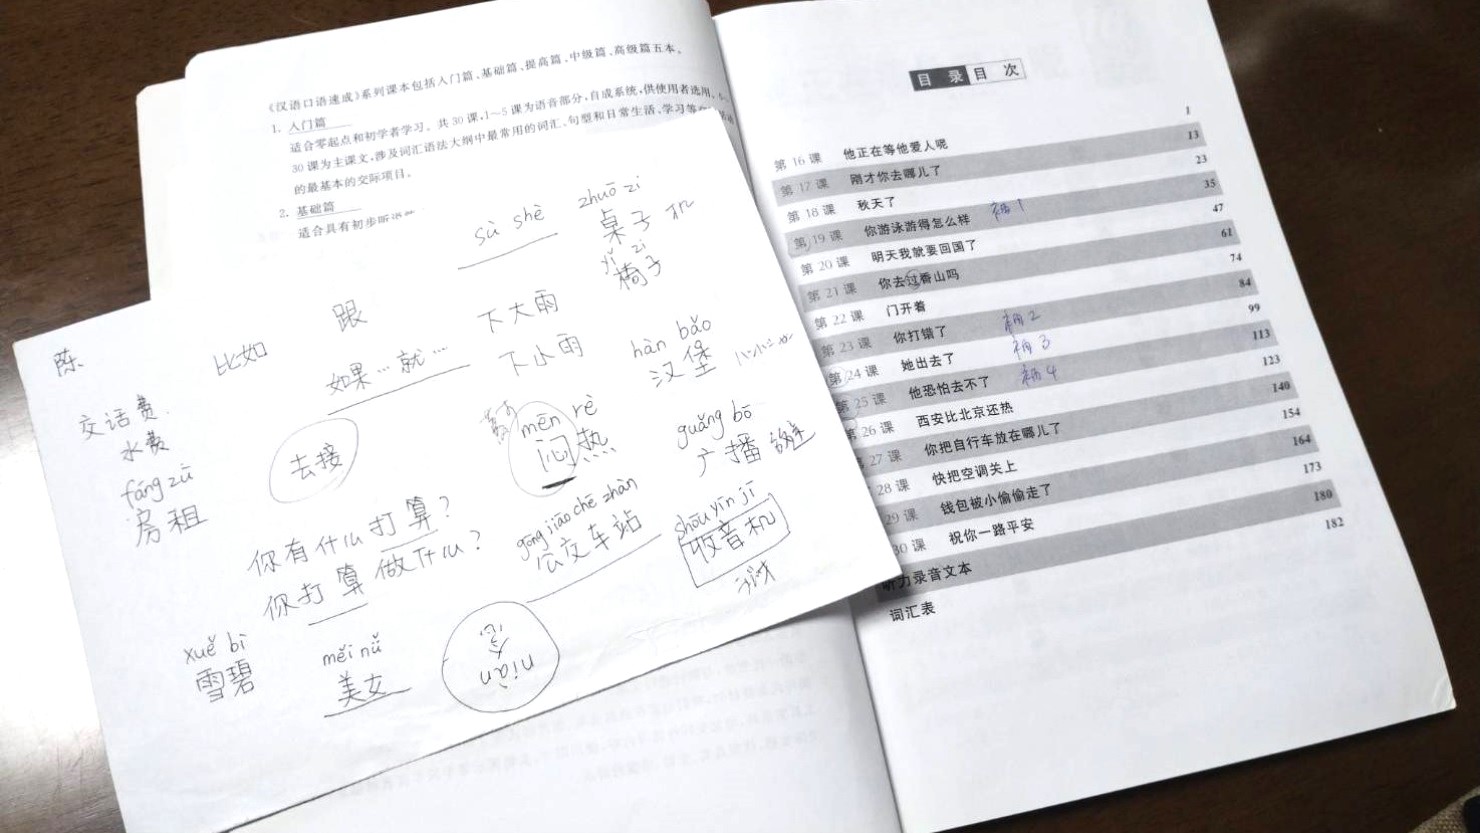 《汉语口语速成》系列课本包括入门篇、基础篇、提高篇、中级篇、高级篇五本。
1. 入门篇
适合零起点和初学者学习。共30课,1～5课为语音部分,自成系统,供使用者选用。6～
30课为主课文,涉及词汇语法大纲中最常用的词汇、句型和日常生活、学习等
的最基本的交际项目。
2. 基础篇
适合具有初步听说
陈
交话费
水费
fáng zū
房租
比如
跟
如果…就…
去接
你有什么打算?
你打算做什么?
xuě bì
雪碧
měi nǚ
美女
niàn
念
sù shè
下大雨
下小雨
mēn rè
闷热
gōng jiāo chē zhàn
公交车站
zhuō zi
桌子
yǐ zi
椅子
hàn bǎo
汉堡
guǎng bō
广播
shōu yīn jī
收音机
目录 目次
第16课 他正在等他爱人呢 1
第17课 刚才你去哪儿了 13
第18课 秋天了 23
第19课 你游泳游得怎么样 35
第20课 明天我就要回国了 47
第21课 你去过香山吗 61
第22课 门开着 74
第23课 你打错了 84
第24课 她出去了 99
第25课 他恐怕去不了 113
第26课 西安比北京还热 123
第27课 你把自行车放在哪儿了 140
28课 快把空调关上 154
29课 钱包被小偷偷走了 164
30课 祝你一路平安 173
听力录音文本 180
词汇表 182